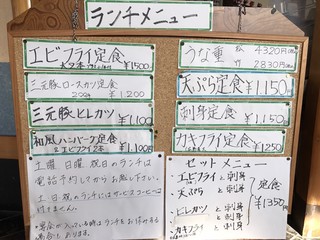 ランチメニュー
エビフライ定食
¥1500
三元豚ロースカツ定食
200g ¥1,200
三元豚ヒレカツ
¥1,100
和風ハンバーグ定食
エビフライ2本 ¥1,100
うな重 松 4320円
竹 2830円
天ぷら定食 ¥1,150
刺身定食 ¥1,150
カキフライ定食 ¥1,250
土曜 日曜 祝日のランチは
電話予約してからお越し下さい。
土 日 祝のランチにはサービスコーヒーは
付きません。
・宴会が入っている時はランチをお休みする
場合もあります。
セットメニュー
・エビフライと刺身
・天ぷらと刺身
・ヒレカツと刺身
・カキフライと刺身
定食
¥1350円